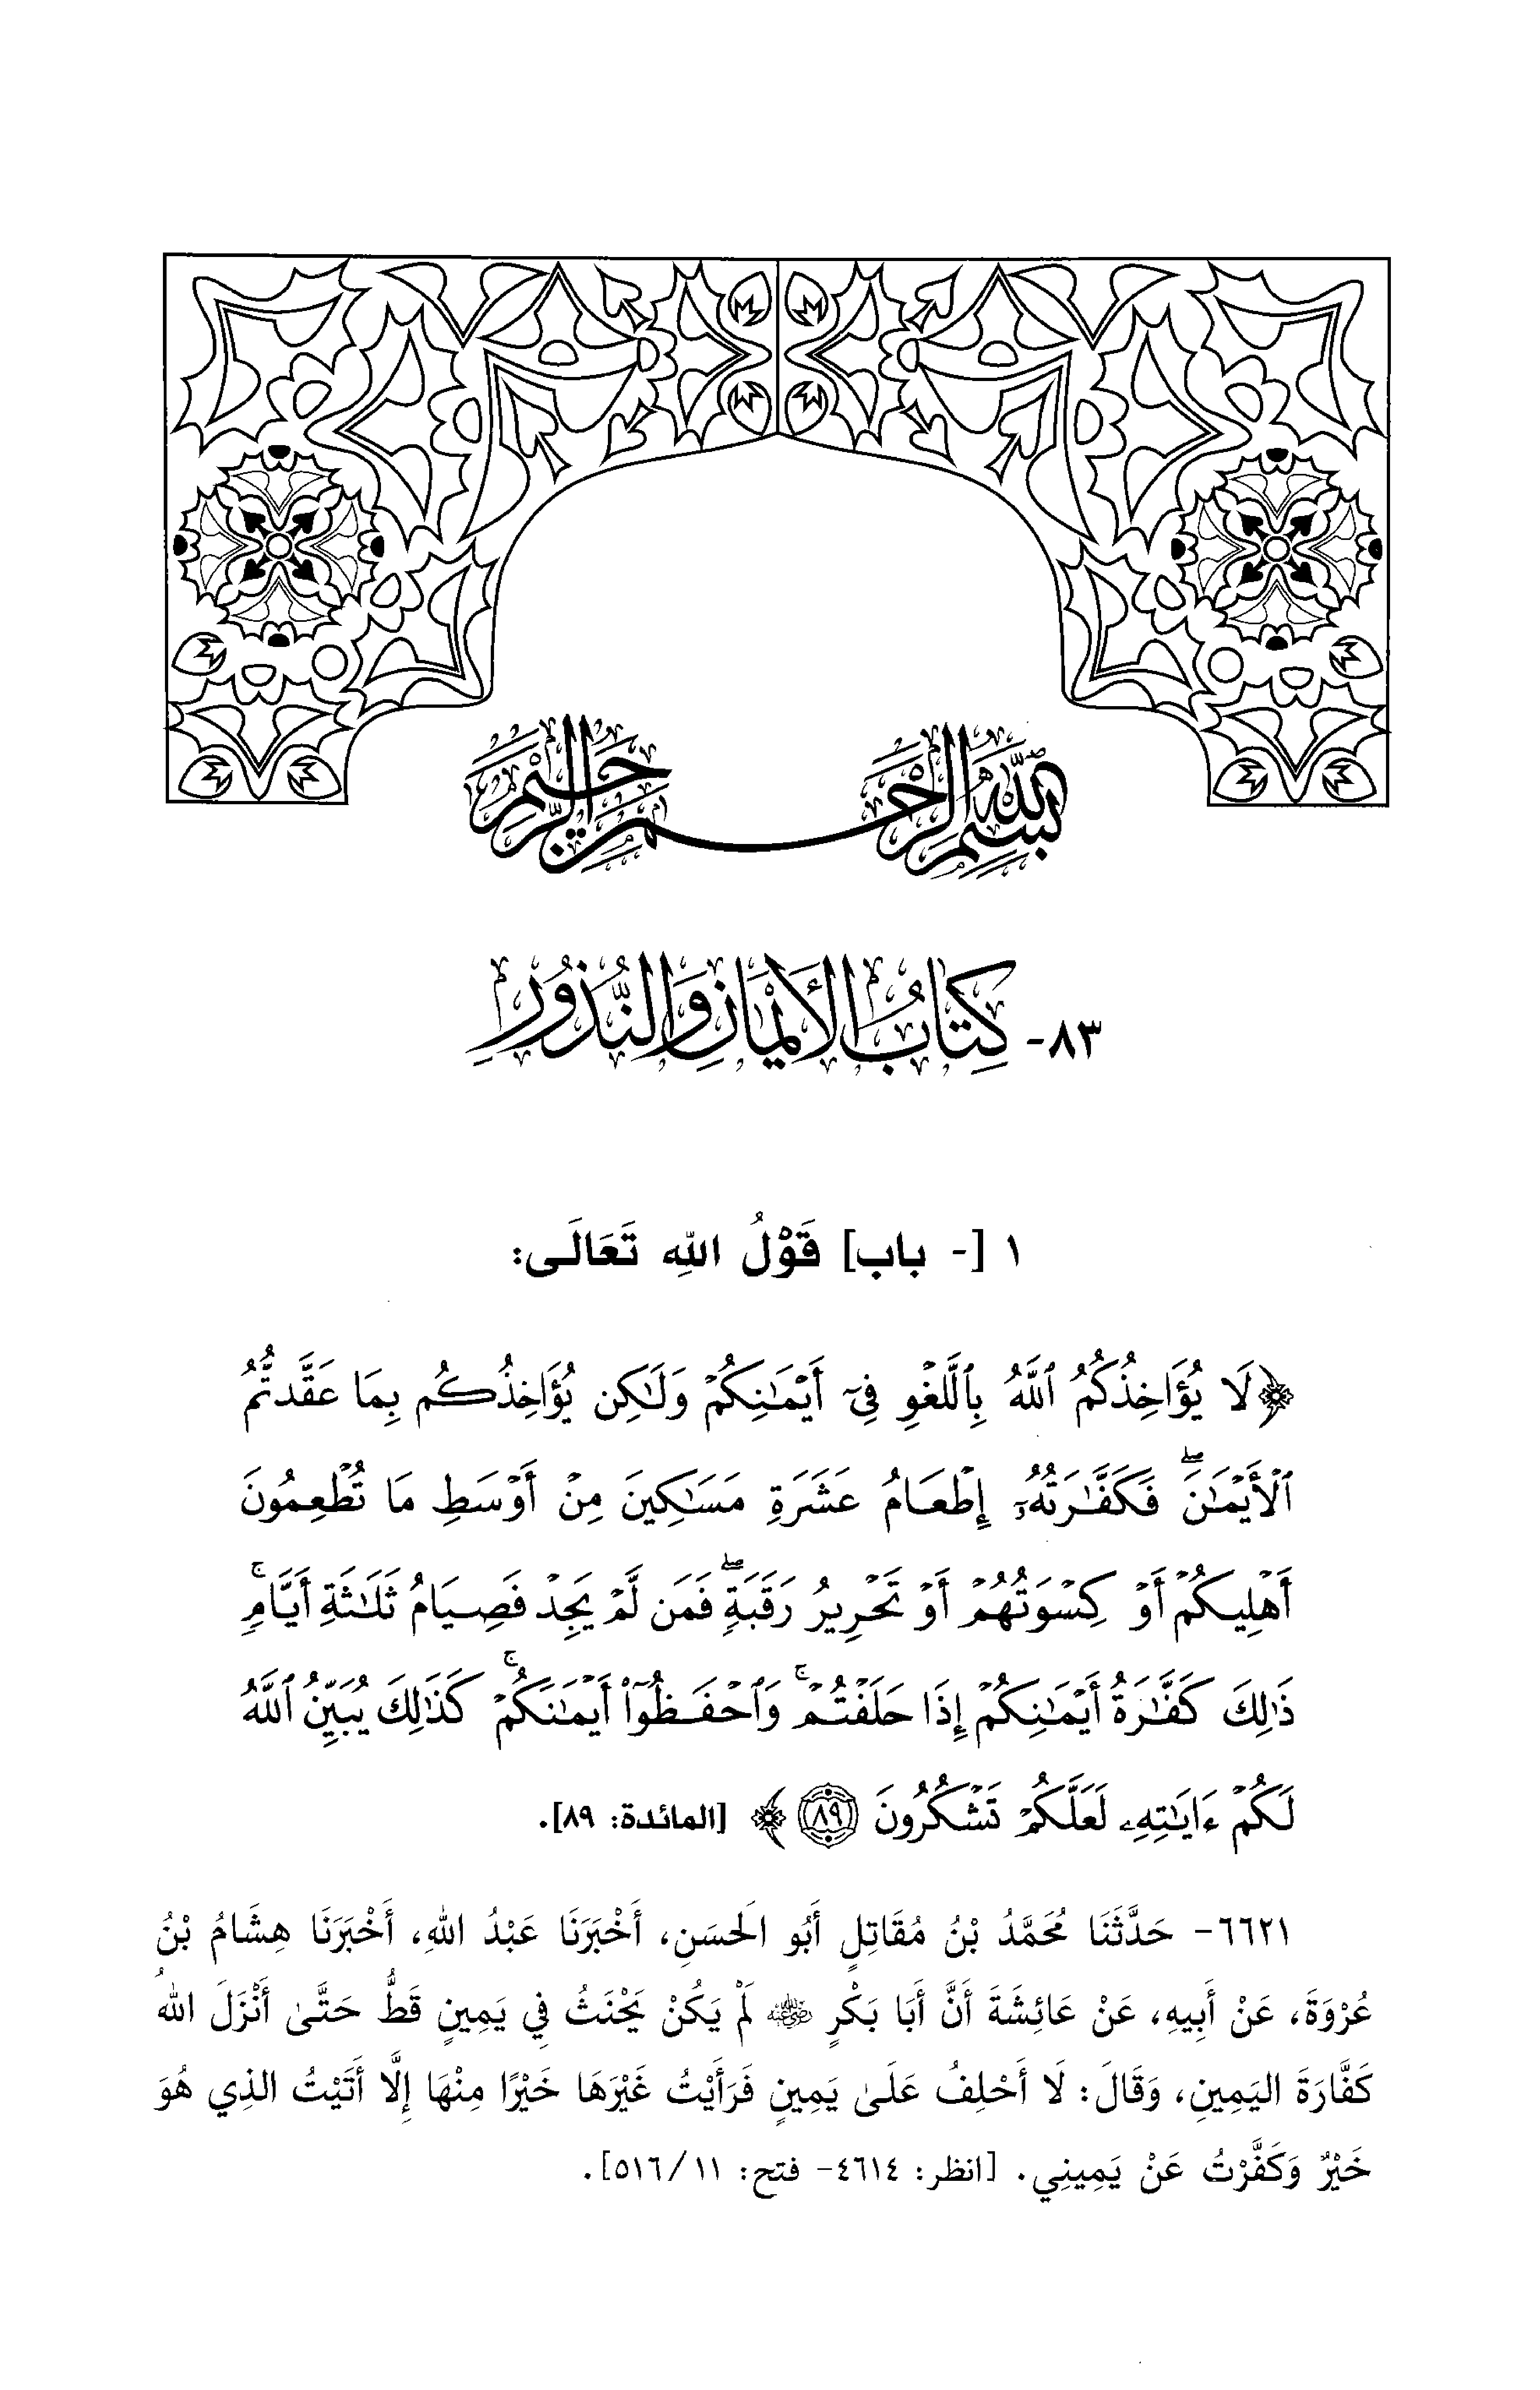 بِسْمِ اللهِ الرَّحْمَنِ الرَّحِيمِ
٨٣- كِتَابُ الأَيْمَانِ وَالنُّذُورِ
١ [- باب] قَوْلُ اللهِ تَعَالَى:
﴿لَا يُؤَاخِذُكُمُ ٱللَّهُ بِٱللَّغۡوِ فِيٓ أَيۡمَٰنِكُمۡ وَلَٰكِن يُؤَاخِذُكُم بِمَا عَقَّدتُّمُ
ٱلۡأَيۡمَٰنَۖ فَكَفَّٰرَتُهُۥٓ إِطۡعَامُ عَشَرَةِ مَسَٰكِينَ مِنۡ أَوۡسَطِ مَا تُطۡعِمُونَ
أَهۡلِيكُمۡ أَوۡ كِسۡوَتُهُمۡ أَوۡ تَحۡرِيرُ رَقَبَةٖۖ فَمَن لَّمۡ يَجِدۡ فَصِيَامُ ثَلَٰثَةِ أَيَّامٖۚ
ذَٰلِكَ كَفَّٰرَةُ أَيۡمَٰنِكُمۡ إِذَا حَلَفۡتُمۡۚ وَٱحۡفَظُوٓاْ أَيۡمَٰنَكُمۡۚ كَذَٰلِكَ يُبَيِّنُ ٱللَّهُ
لَكُمۡ ءَايَٰتِهِۦ لَعَلَّكُمۡ تَشۡكُرُونَ ٨٩﴾ [المائدة: ٨٩].
٦٦٢١- حَدَّثَنَا مُحَمَّدُ بْنُ مُقَاتِلٍ أَبُو الَحسَنِ، أَخْبَرَنَا عَبْدُ اللهِ، أَخْبَرَنَا هِشَامُ بْنُ
عُرْوَةَ، عَنْ أَبِيهِ، عَنْ عَائِشَةَ أَنَّ أَبَا بَكْرٍ رضي الله عنه لَمْ يَكُنْ يَحْنَثُ فِي يَمِينٍ قَطُّ حَتَّىٰ أَنْزَلَ اللهُ
كَفَّارَةَ اليَمِينِ، وَقَالَ: لَا أَحْلِفُ عَلَىٰ يَمِينٍ فَرَأَيْتُ غَيْرَهَا خَيْرًا مِنْهَا إِلَّا أَتَيْتُ الذِي هُوَ
خَيْرٌ وَكَفَّرْتُ عَنْ يَمِينِي. [انظر: ٤٦١٤- فتح: ١١/ ٥١٦].